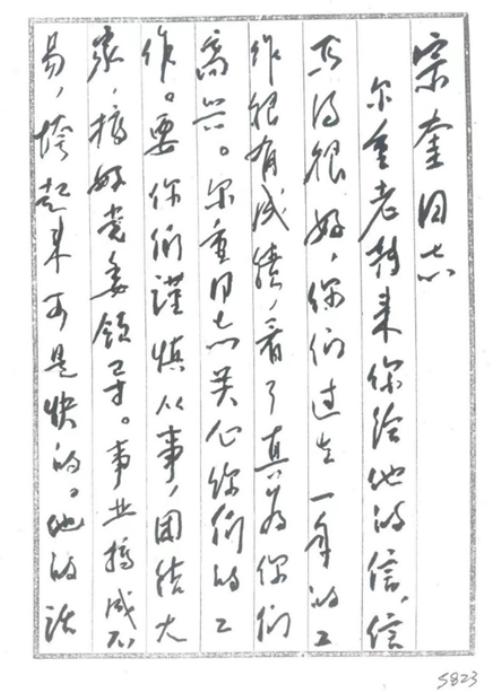 宗奎同志
尔重老转来你给他的信,信
写得很好,你们过去一年的工
作很有成绩,看了真为你们
高兴。尔重同志关心你们的工
作。要你们谨慎从事,团结大
家,搞好党委领导。事业搞成不
易,垮起来可是快的。他的话
5823